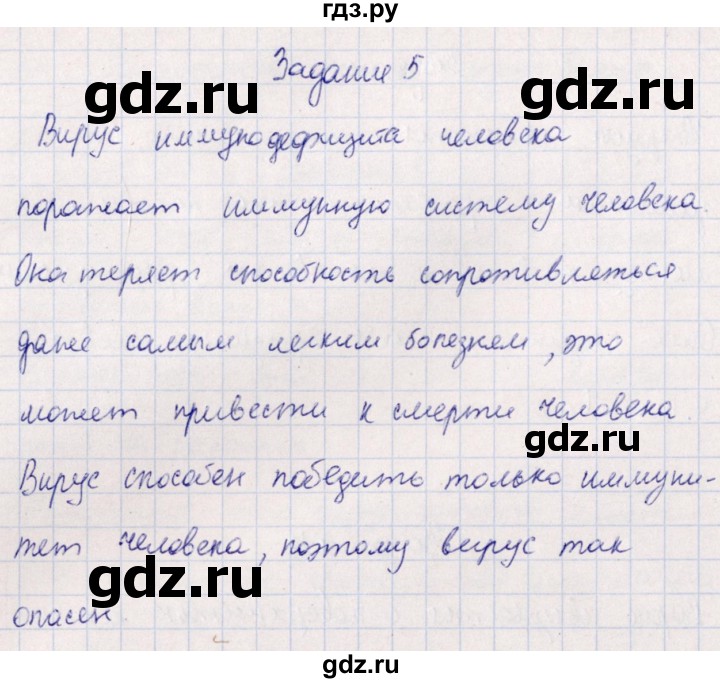 гдз.ру
Задание 5
gdz.ru gdz.ru
Вирус иммунодефицита человека
поражает иммунную систему человека.
Она теряет способность сопротивляться
даже самым легким болезнем, это
может привести к смерти человека.
gdz.ru
Вирус способен победить только иммуни-
тет человека, поэтому вирус так
gdz.ru
опасен
gdz.ru